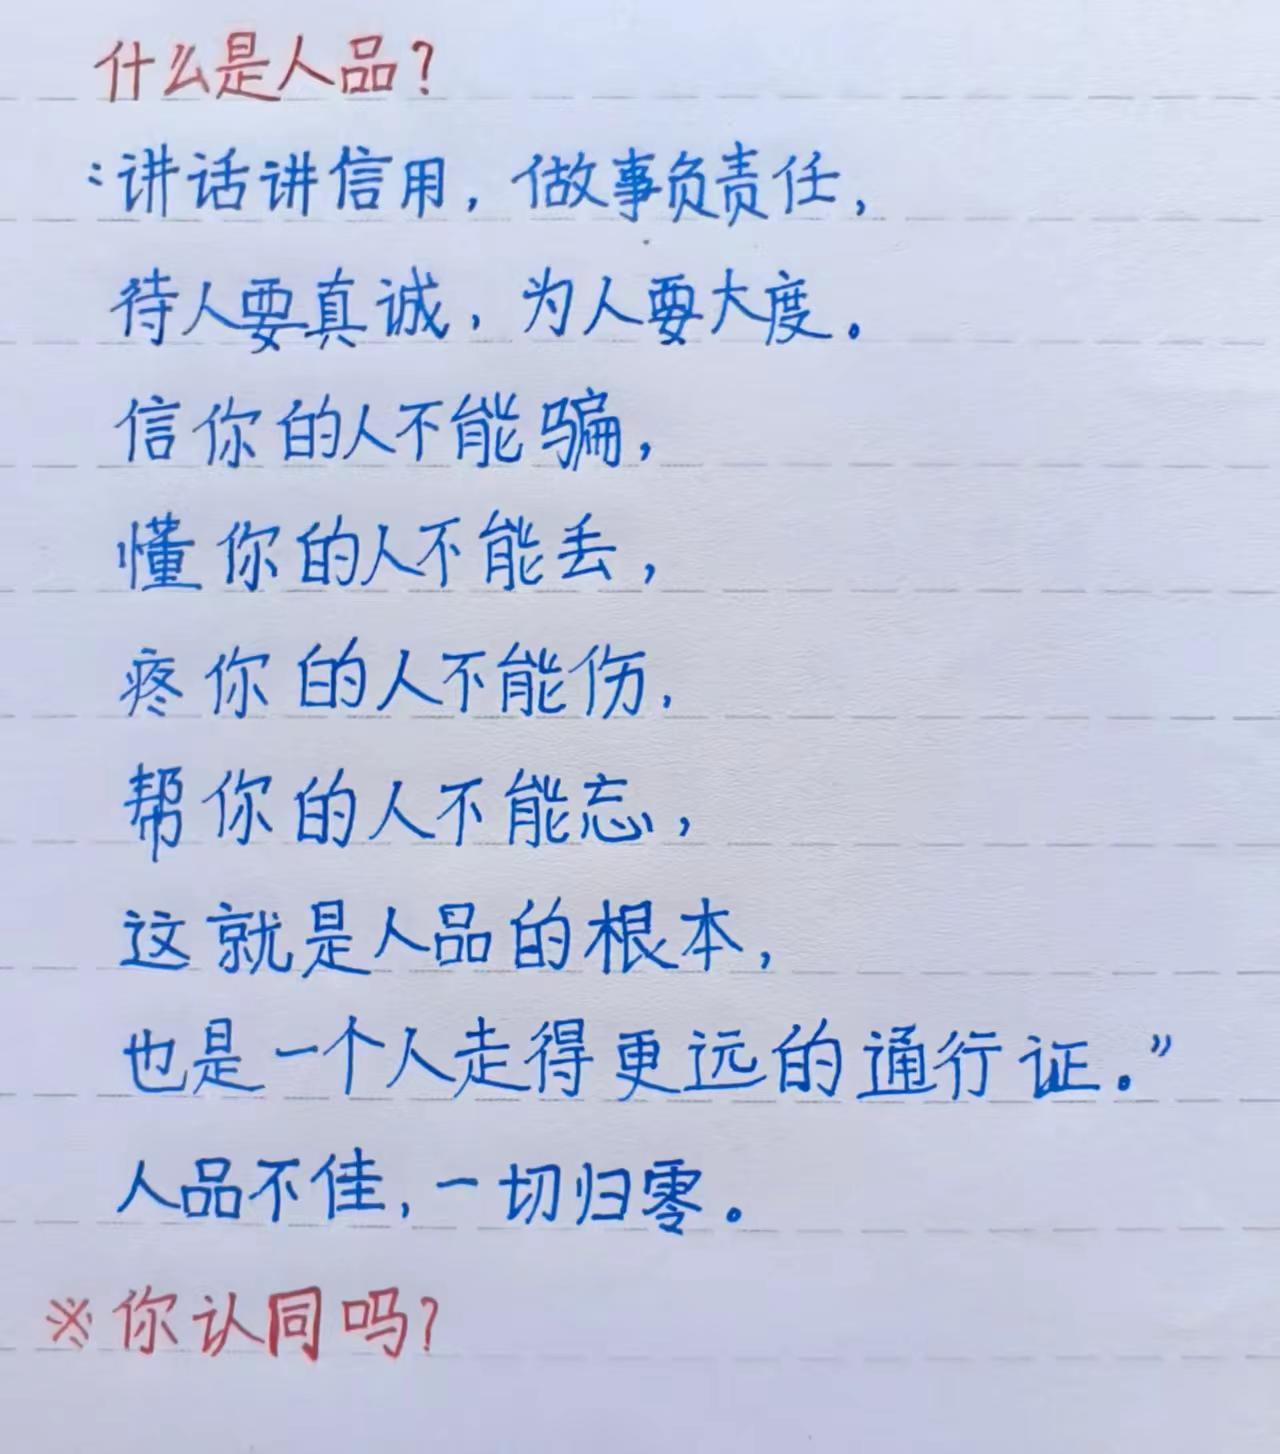 什么是人品?
“讲话讲信用，做事负责任，
待人要真诚，为人要大度。
信你的人不能骗，
懂你的人不能丢，
疼你的人不能伤，
帮你的人不能忘，
这就是人品的根本，
也是一个人走得更远的通行证。”
人品不佳，一切归零。
※你认同吗?